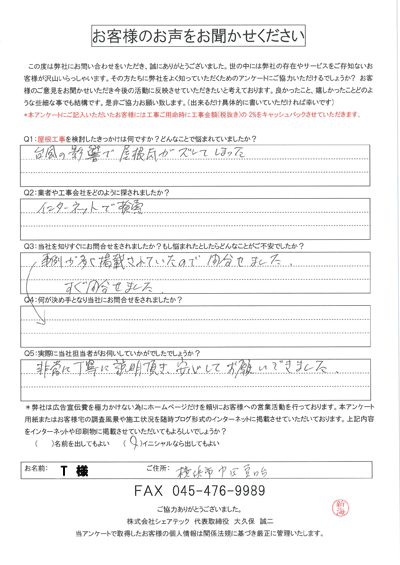 お客様のお声をお聞かせください
この度は弊社にお問い合わせをいただき、誠にありがとうございました。世の中には弊社の存在やサービスをご存知ないお
客様が沢山いらっしゃいます。その方たちに弊社をよく知っていただくためのアンケートにご協力いただけるでしょうか？ お客
様のご意見をお聞かせいただき今後の活動に反映させていただきたいと考えております。良かったこと、嬉しかったことどのよ
うな些細な事でも結構です。是非ご協力お願い致します。(出来るだけ具体的に書いていただければ幸いです)
*本アンケートにご記入いただいたお客様には工事ご用命時に工事金額(税抜き)の 2%をキャッシュバックさせていただきます。
Q1:屋根工事を検討したきっかけは何ですか？どんなことで悩まれていましたか？
台風の影響で屋根瓦がズレてしまった
Q2:業者や工事会社をどのように探されましたか？
インターネットで検索
Q3:当社を知りすぐにお問合せをされましたか？もし悩まれたとしたらどんなことがご不安でしたか？
事例が多く掲載されていたので問合せました。
すぐ問合せました。
Q4:何が決め手となり当社にお問合せをされましたか？
Q5:実際に当社担当者がお伺いしていかがでしたでしょうか？
非常に丁寧に説明頂き、安心してお願いできました。
*弊社は広告宣伝費を極力かけない為にホームページだけを頼りにお客様への営業活動を行っております。本アンケート
用紙またはお客様宅の調査風景や施工状況を随時ブログ形式のインターネットに掲載させていただいております。上記内容
をインターネットや印刷物に掲載させていただいてもよろしいでしょうか？
( )名前を出してもよい ( )イニシャルなら出してもよい
お名前: T 様 ご住所: 横浜市中区
FAX 045-476-9989
ご協力ありがとうございました。
株式会社シェアテック 代表取締役 大久保 誠二
当アンケートで取得したお客様の個人情報は関係法規に基づき厳正に管理いたします。